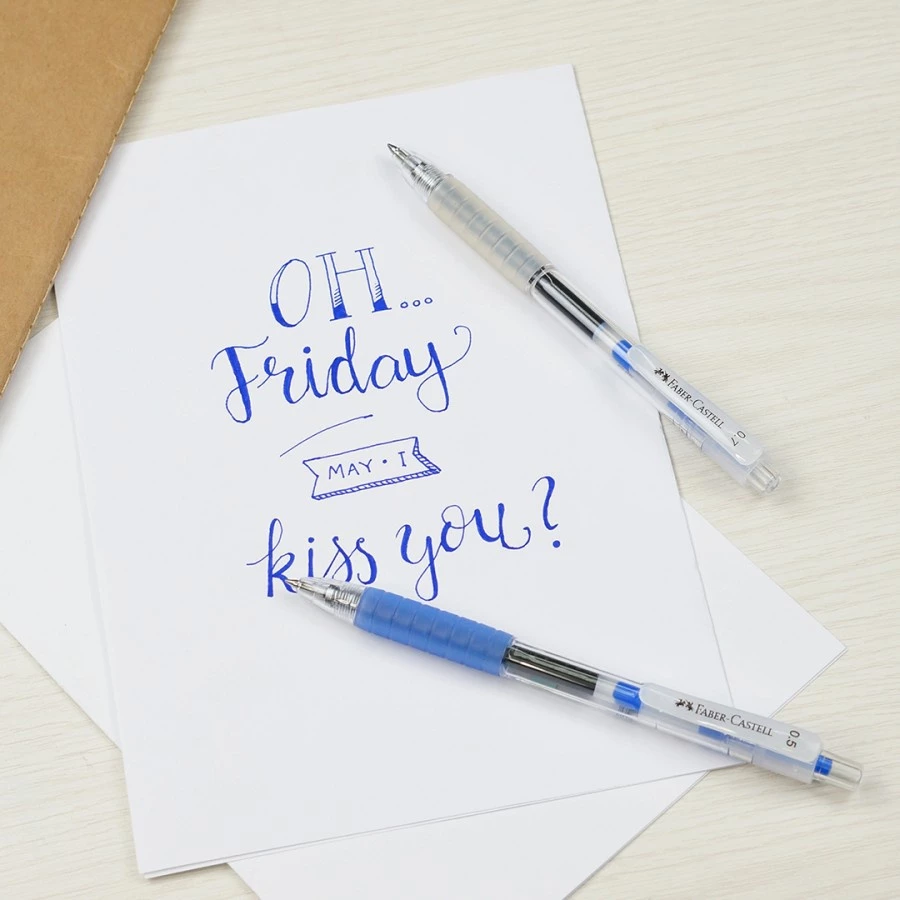 OH...
Friday
MAY • I
kiss you?
FABER-CASTELL 0.7
FABER-CASTELL 0.5